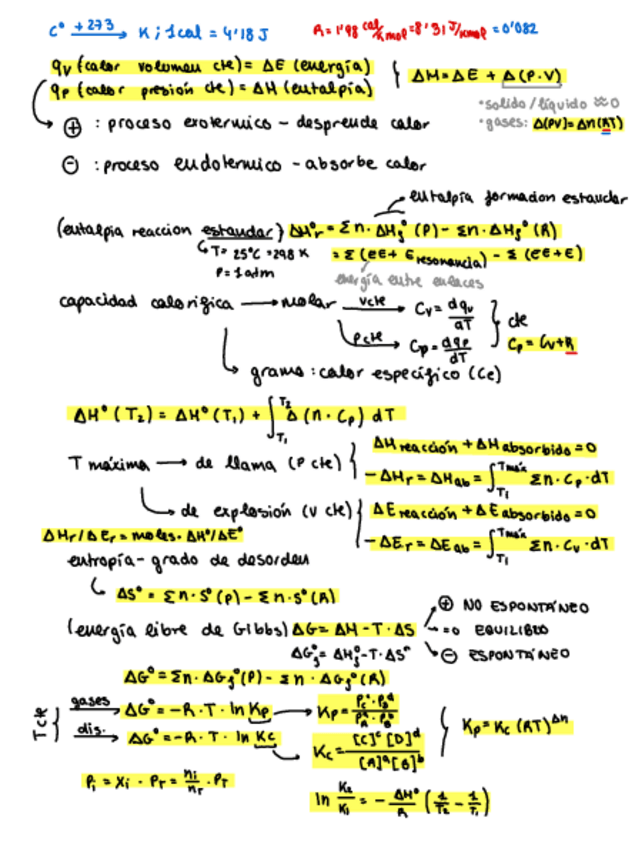 C° +273 → K ; 1cal = 4'18 J    R = 1'98 cal/K mol = 8'31 J/K mol = 0'082
qv (calor volumen cte) = ΔE (energía) } ΔH = ΔE + Δ(P·V)
qp (calor presión cte) = ΔH (entalpía)
• solido/líquido ≈ 0
• gases: Δ(PV) = Δn(RT)
→ ⊕ : proceso exotermico - desprende calor
⊖ : proceso endotermico - absorbe calor
→ entalpia formacion estandar
(entalpia reaccion estandar) ΔH°r = Σn·ΔHf°(P) - Σn·ΔHf°(R)
→ T = 25°C = 298 K    = Σ(eE + E resonancia) - Σ(eE + E)
P = 1 atm    energía entre enlaces
capacidad calorifica → molar vcte → Cv = dqv/dT } cte
pcte → Cp = dqp/dT    Cp = Cv + R
→ gramo : calor específico (Ce)
ΔH°(T₂) = ΔH°(T₁) + ∫T₁T₂ Δ(n·Cp) dT
T máxima → de llama (P cte) { ΔH reacción + ΔH absorbido = 0
-ΔHr = ΔHab = ∫T₁Tmáx Σn·Cp·dT
→ de explosión (v cte) { ΔE reacción + ΔE absorbido = 0
-ΔEr = ΔEab = ∫T₁Tmáx Σn·Cv·dT
ΔHr/ΔEr = moles·ΔH°/ΔE°
entropía - grado de desorden
→ ΔS° = Σn·S°(P) - Σn·S°(R)
(energía libre de Gibbs) ΔG = ΔH - T·ΔS
⊕ NO ESPONTÁNEO
=0 EQUILIBRO
⊖ ESPONTÁNEO
ΔGf° = ΔHf° - T·ΔS°
ΔG° = Σn·ΔGf°(P) - Σn·ΔGf°(R)
T cte { gases → ΔG° = -R·T·ln Kp → Kp = Pcᶜ·PDᵈ / PAᵃ·PBᵇ
dis. → ΔG° = -R·T·ln Kc → Kc = [C]ᶜ[D]ᵈ / [A]ᵃ[B]ᵇ
} Kp = Kc (RT)^Δn
Pi = Xi · PT = ni/nT · PT
ln K₂/K₁ = - ΔH°/R (1/T₂ - 1/T₁)